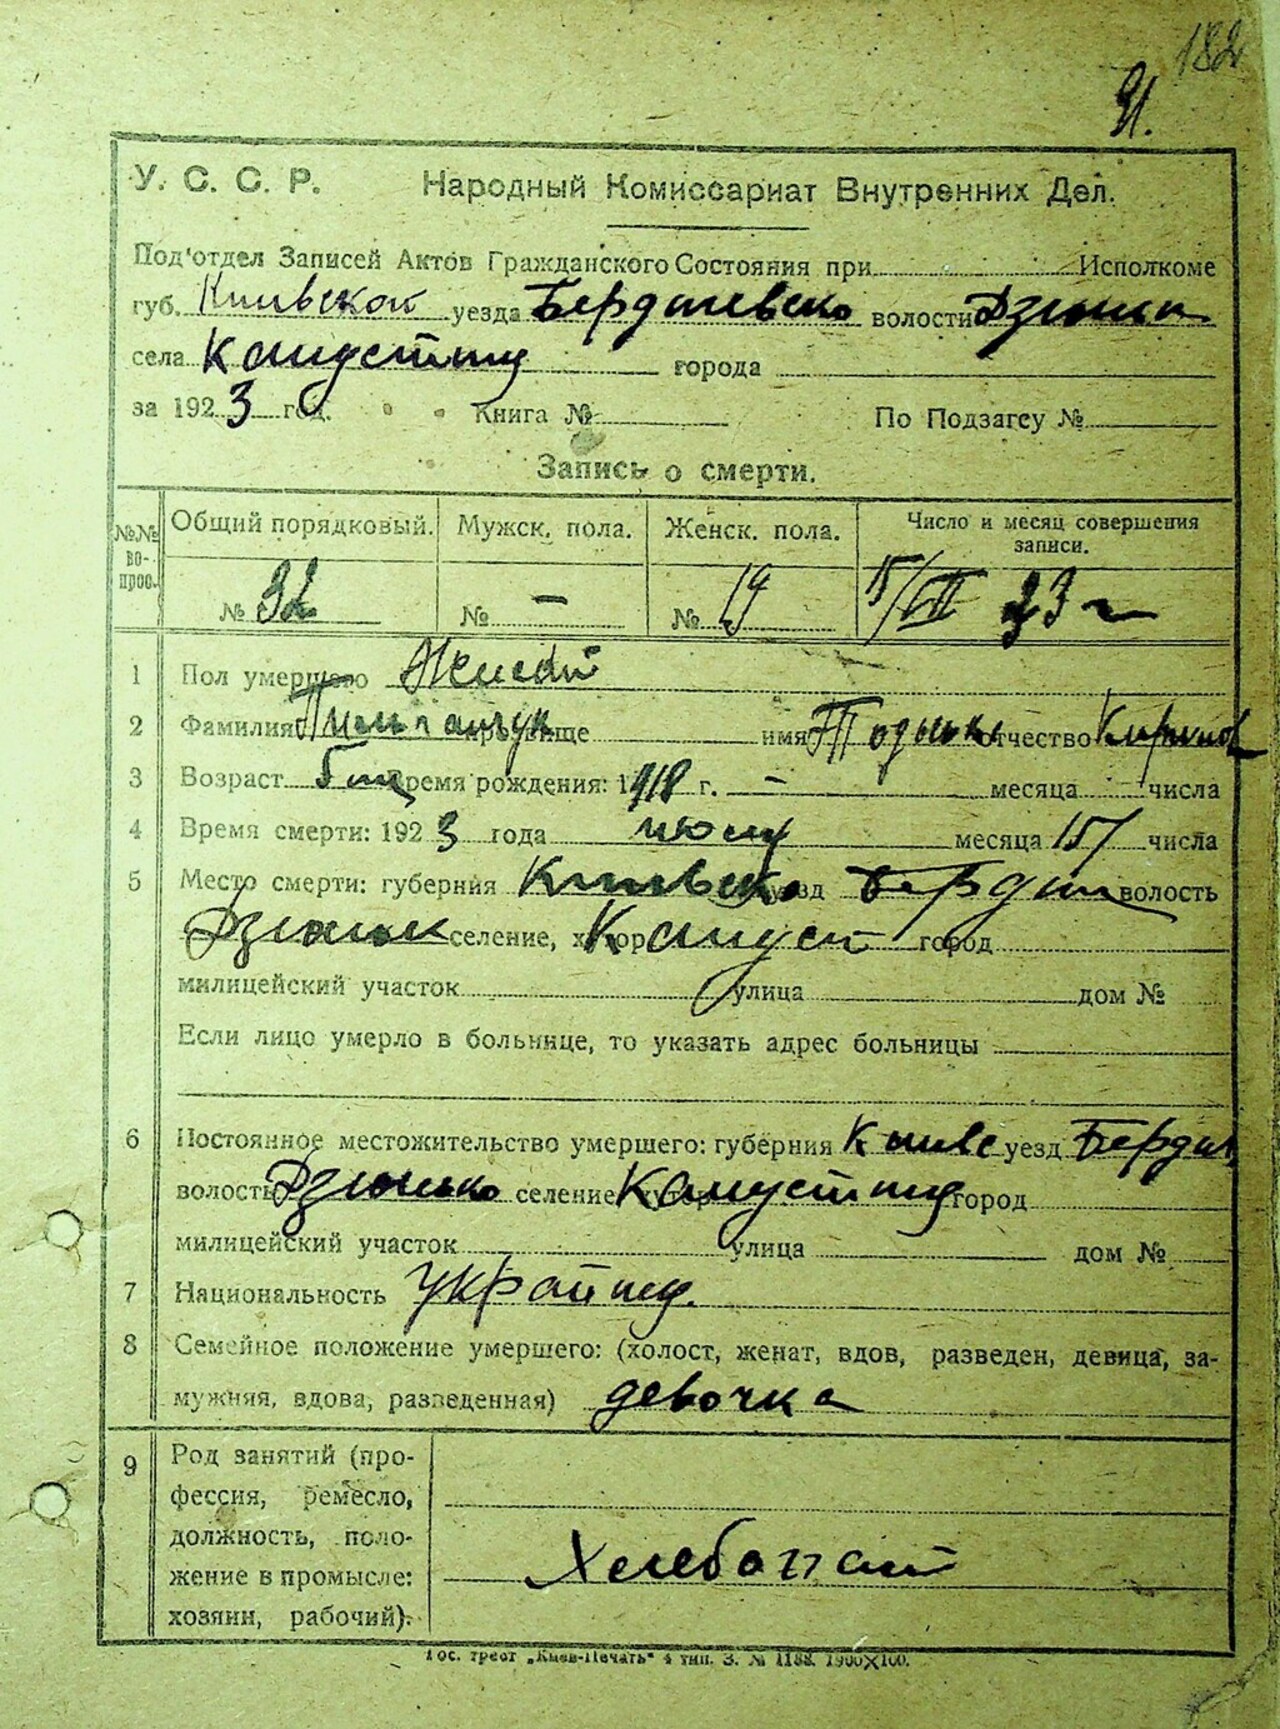 182
91.
У. С. С. Р. Народный Комиссариат Внутренних Дел.
Под'отдел Записей Актов Гражданского Состояния при Исполкоме
губ. Киивской уезда Бердичевско волости Дзюньк
села Капустину города
за 1923 год. Книга № По Подзагсу №
Запись о смерти.
№№ во-прос. Общий порядковый. Мужск. пола. Женск. пола. Число и месяц совершения записи.
№ 32 № — № 19 15/VII 23 г
1 Пол умершего Женский
2 Фамилия прозвище имя отчество
3 Возраст 5 время рождения: 1918 г. — месяца числа
4 Время смерти: 1923 года июля месяца 15 числа
5 Место смерти: губерния Киивско уезд Бердич волость
Дзюньк селение, хутор Капуст город
милицейский участок улица дом №
Если лицо умерло в больнице, то указать адрес больницы
6 Постоянное местожительство умершего: губерния Киивс уезд Бердич
волость Дзюнько селение хутор Капустину город
милицейский участок улица дом №
7 Национальность Украйну.
8 Семейное положение умершего: (холост, женат, вдов, разведен, девица, за-
мужняя, вдова, разведенная) девочка
9 Род занятий (про-
фессия, ремесло,
должность, поло-
жение в промысле: Хлебопаш
хозяин, рабочий).
Гос. трест „Киев-Печать" 4 тип. З. № 1188. 1900×100.